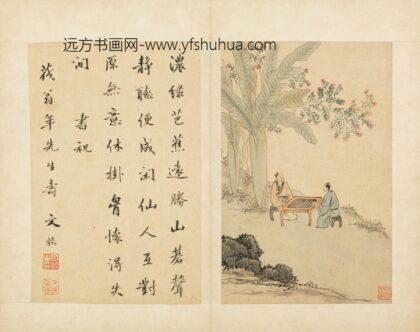 远方书画网-www.yfshuhua.com
濃綠芭蕉遠勝山碁聲
靜聽便成閑仙人互對
原無意休掛胷懷得失
間 書祝
翁年先生壽 文